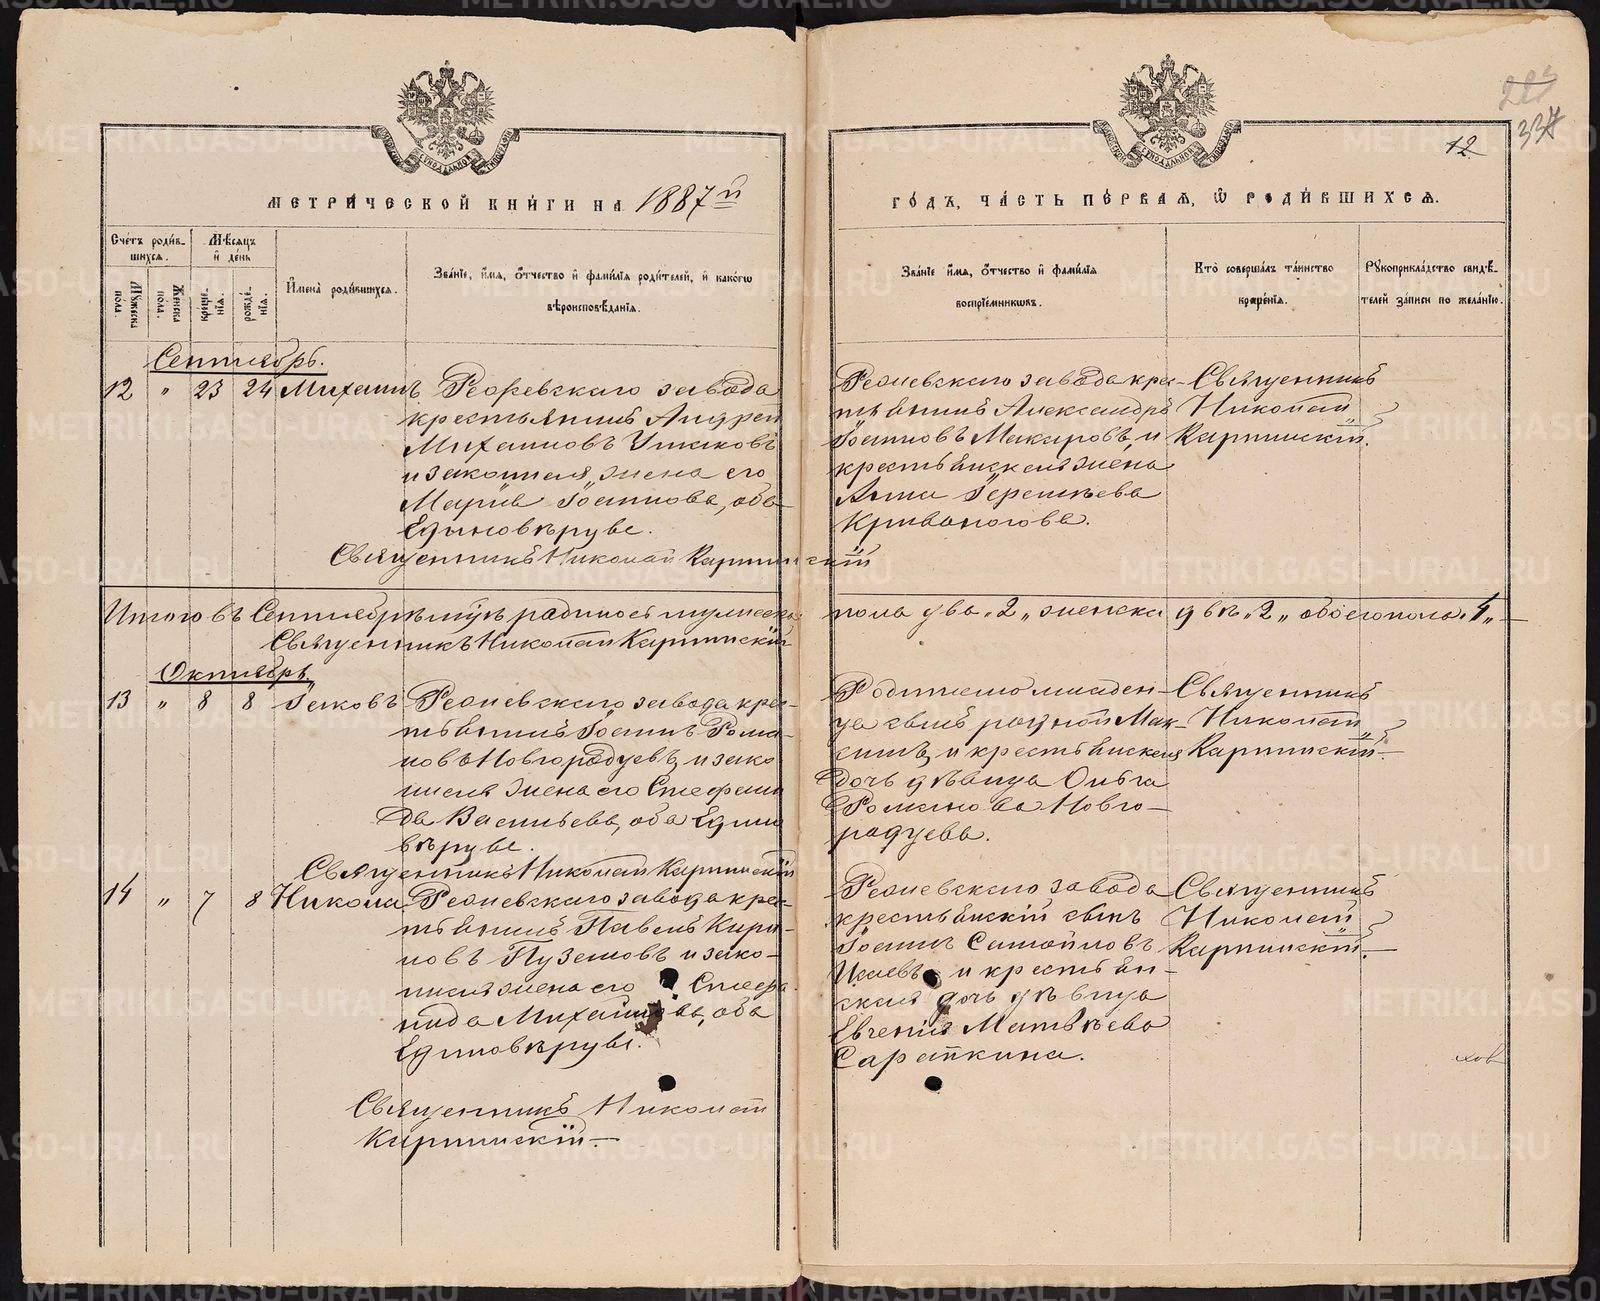 МЕТРИЧЕСКОЙ КНИГИ НА 1887й
ГОДЪ, ЧАСТЬ ПЕРВАЯ, Ѿ РОДИВШИХСЯ.
12
Счетъ родив-
шихся.
Мѣсяцъ
и день
Мужеска
полъ.
Женска
полъ.
креще-
нія.
рожде-
нія.
Имена родившихся.
Званіе, имя, ѿтчество и фамилія родителей, и какогω
вѣроисповѣданія.
Званіе имя, ѿтчество и фамилія
воспріемникωвъ.
Кто совершалъ таинство
крещенія.
Рукоприкладство свидѣ-
телей записи по желанію.
Сентябрь.
12 " 23 24 Михаилъ
завода
крестьянинъ Андрей
Михаиловъ Ушаковъ
и законная жена его
Марія Іоаннова, оба
Единовѣрцы.
Священникъ Николай Карпинскій
Режевскаго завода крес-
тьянинъ Александръ
Іоанновъ Макаровъ, и
крестьянская жена
Анна
Кривоногова.
Священникъ
Николай
Карпинскій.
Итого въ Сентябрѣ м-цѣ родилось мужеска
пола два "2" женска двѣ "2" обоего пола "4"
Священникъ Николай Карпинскій
Октябрь.
13 " 8 8 Іаковъ
Режевскаго завода крес-
тьянинъ Іоаннъ Рома-
новъ Новгородцевъ, и зако
нная жена его Стефани
да Васильева, оба Едино
вѣрцы.
Священникъ Николай Карпинскій
Родителю младен-
ца сынъ родной Мак-
симъ, и крестьянская
дочь дѣвица Ольга
Романова Новго-
родцева.
Священникъ
Николай
Карпинскій.
14 " 7 8 Никола
Режевскаго завода крес-
тьянинъ Павелъ Кири-
новъ Пузановъ и зако-
нная жена его Стефа-
нида Михаилова, оба
Единовѣрцы.
Священникъ Николай
Карпинскій.
Режевскаго завода
крестьянскій сынъ
Іоаннъ Самойловъ
Исаевъ и крестьян-
ская дочь дѣвица
Евгенія Матвѣева
Сарапкина.
Священникъ
Николай
Карпинскій.
METRIKI.GASO-URAL.RU